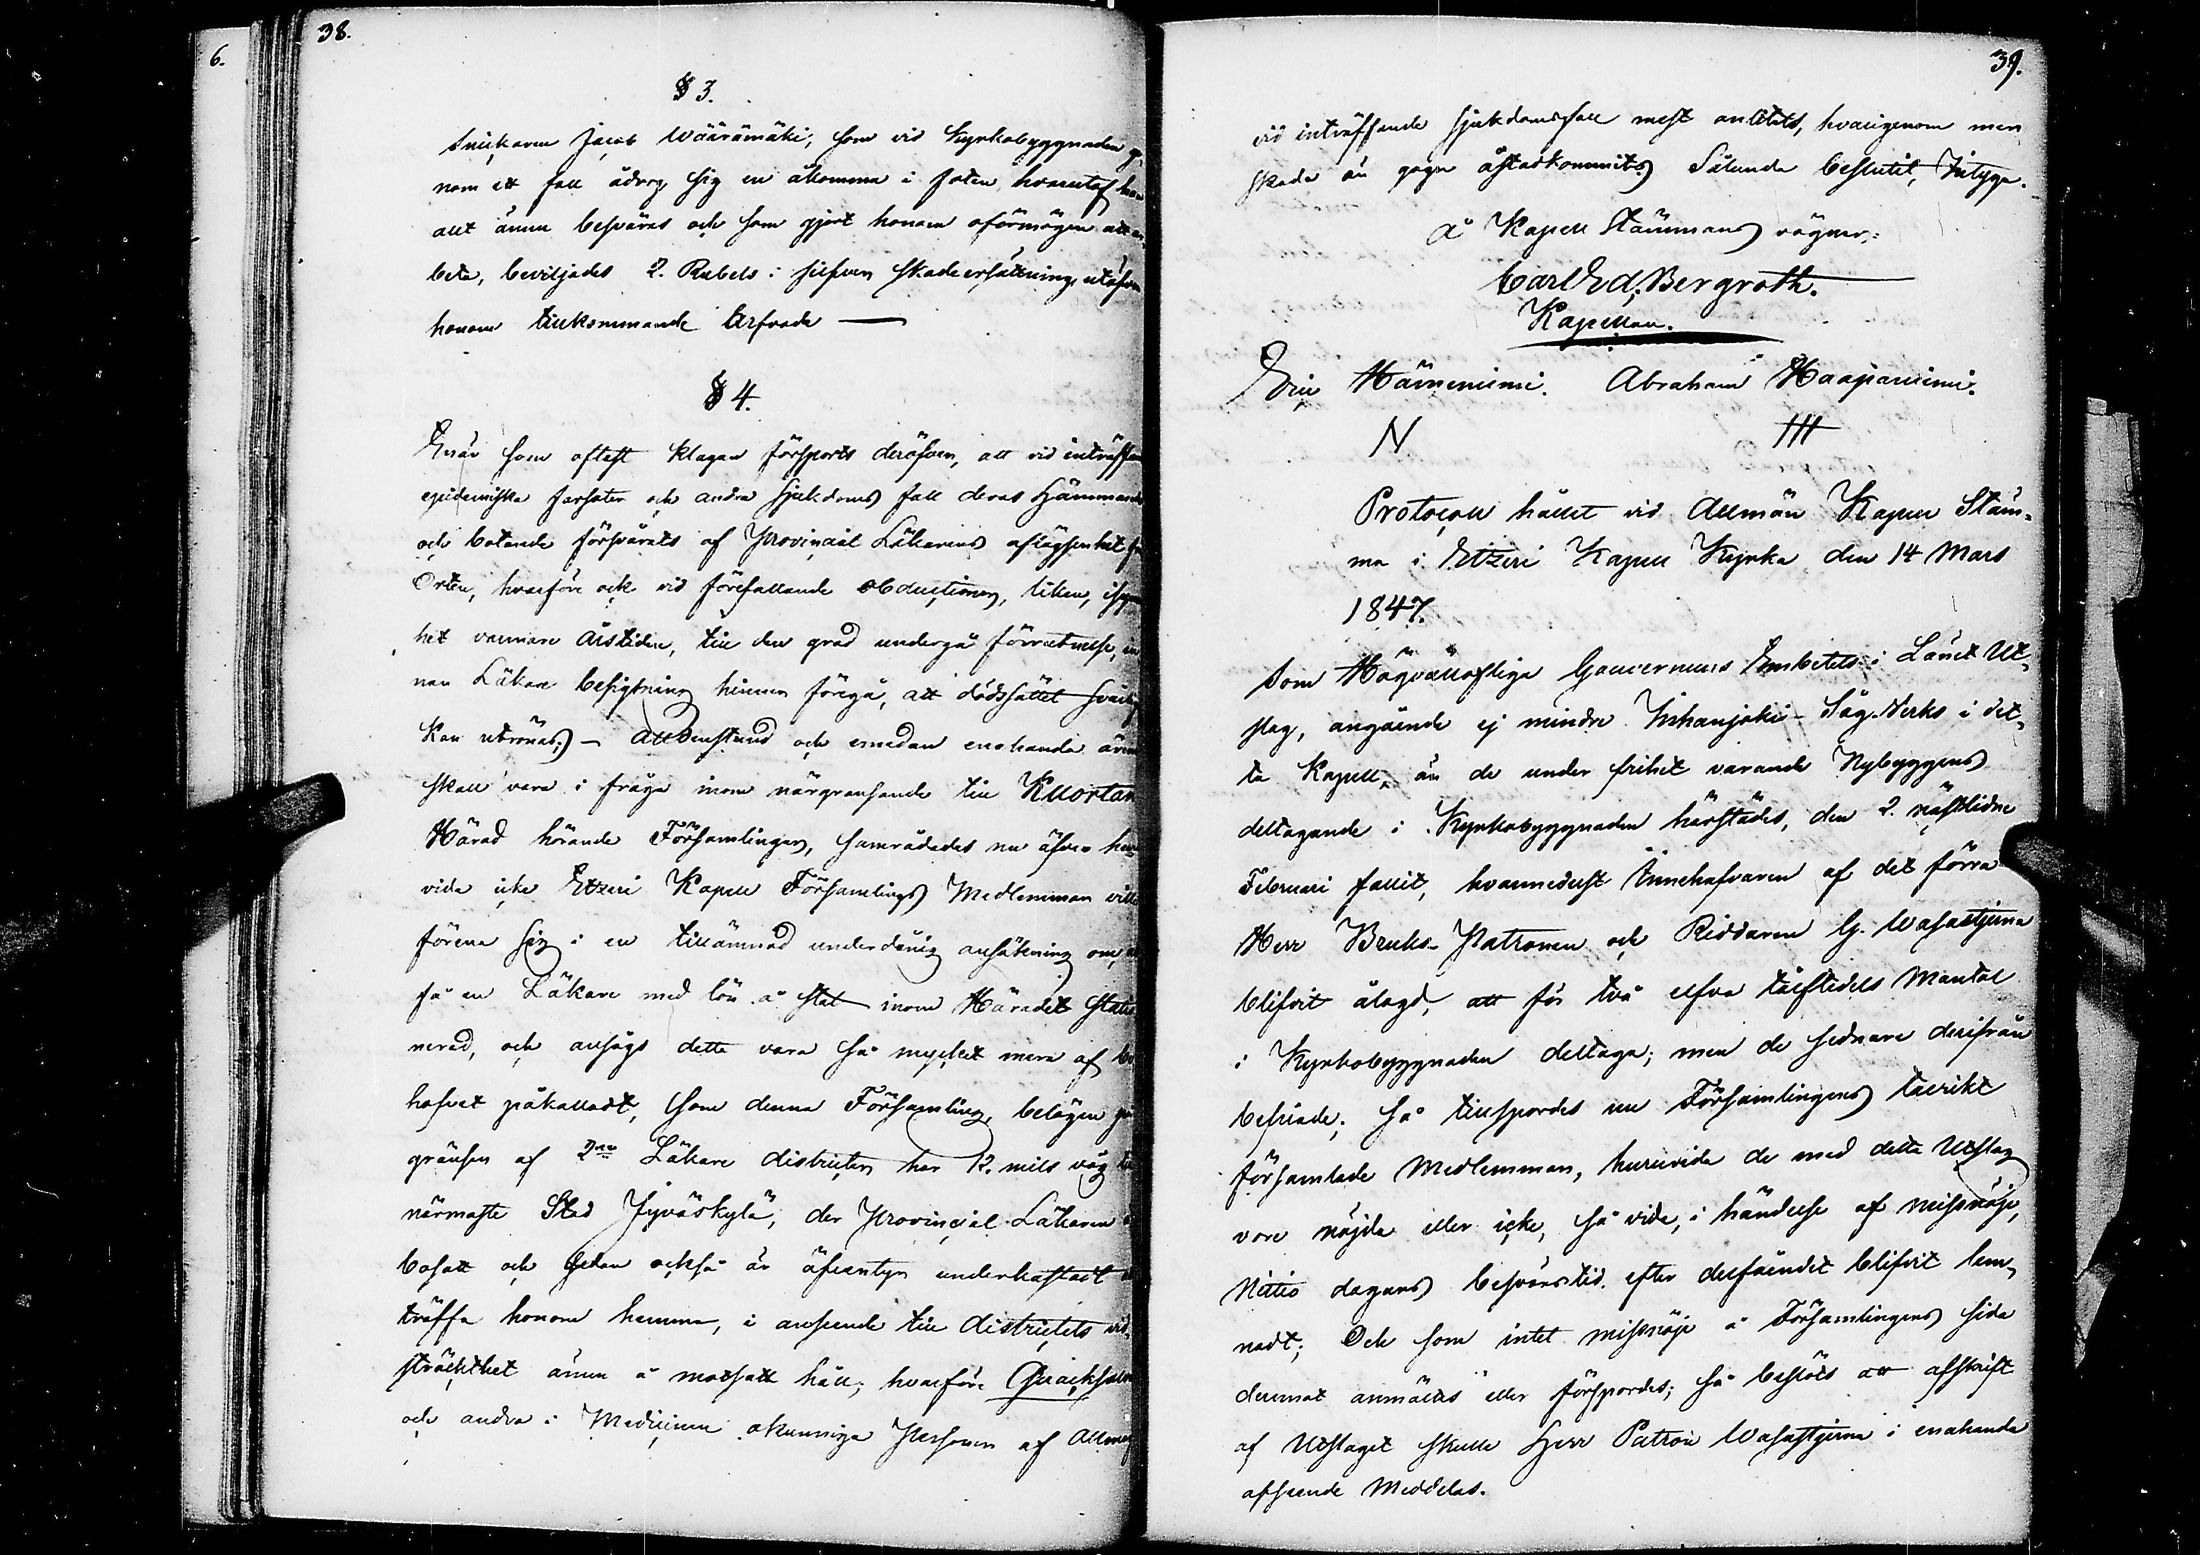 6.
38.
§ 3.
Snickaren Jacob Wäärämäki, som vid Kyrkobyggnaden ge
nom ett fall ådrog sig en åkomma i foten, hvaraf han
allt ännu besväras och som gjort honom oförmögen att ar
beta, beviljades 2. Rubels i silfver skadeersättning, utöfver
honom tillkommande
§ 4.
Enär som oftast klagan försports deröfver, att vid inträffan
epidemiska farsoter och andra sjukdoms fall deras hämmande
och botande försvårats af Provincial Läkarens aflägsenhet fr
Orten, hvarföre ock vid förefallande obductioner, liken, isyn
het varmare årstiden, till den grad undergå förrutnelse, in
nan Läkare besigtning hinner föregå, att dödssättet svårlig
kan utrönas; — Alldenstund och emedan enahanda även
skall vara i fråga inom närgränsande till Kuortan
Härad hörande Församlingar, samrådades nu äfven huru
vida icke Etzeri Kapell Församlings Medlemmar ville
förena sig i en tillämnad underdånig ansökning om, a
få en Läkare med lön å stat inom Häradet statio
nerad, och ansågs detta vara så mycket mera af be
hofvet påkalladt, som denna Församling, belägen på
gränsen af 2ne Läkare districter har 12. mils väg ti
närmaste Stad Jyväskylä, der Provincial Läkaren ä
bosatt och sedan också är äfventyr underkastadt a
träffa honom hemma, i anseende till districtets vid
sträckthet ännu å motsatt håll; hvarföre Quacksalv
och andra i Medicinen okunniga Personer af Allmog
39.
vid inträffande sjukdomsfall mest anlitats, hvarigenom mer
skada än gagn åstadkommits. Sålunda beslutit, Intyga.
å Kapell Stämmans vägnar:
Carl Ed. Bergroth.
Kapellan.
Eric Hännimi. Abraham Haapaniemi.
N HH
Protocoll hållet vid Allmän Kapell Stäm-
ma i Etzeri Kapell Kyrka den 14 Mars
1847.
Som Högvällofliga Gouvernements Embetets i Länet Ut-
slag, angående ej mindre Inhanjoki-Såg-Verks i det-
ta Kapell, än de under frihet varande Nybyggens
deltagande i Kyrkobyggnaden härstädes, den 2. nästlidne
Februari fallit, hvarmedelst Innehafvaren af det förra
Herr Bruks-Patronen och Riddaren G. Wasastjerna
blifvit ålagd, att för två elfva tolftedels Mantal
i Kyrkobyggnaden deltaga; men de sednare derifrån
befriade; så tillspordes nu Församlingens talrikt
församlade Medlemmar, huruvida de med detta Utslag
vore nöjda eller icke, så vida, i händelse af missnöje,
Nittio dagars besvärstid efter delfåendet blifvit lem-
nadt; Och som intet missnöje å Församlingens sida
deremot anmältes eller förspordes; så beslöts att afskrift
af Utslaget skulle Herr Patron Wasastjerna i enahanda
afseende Meddelas.